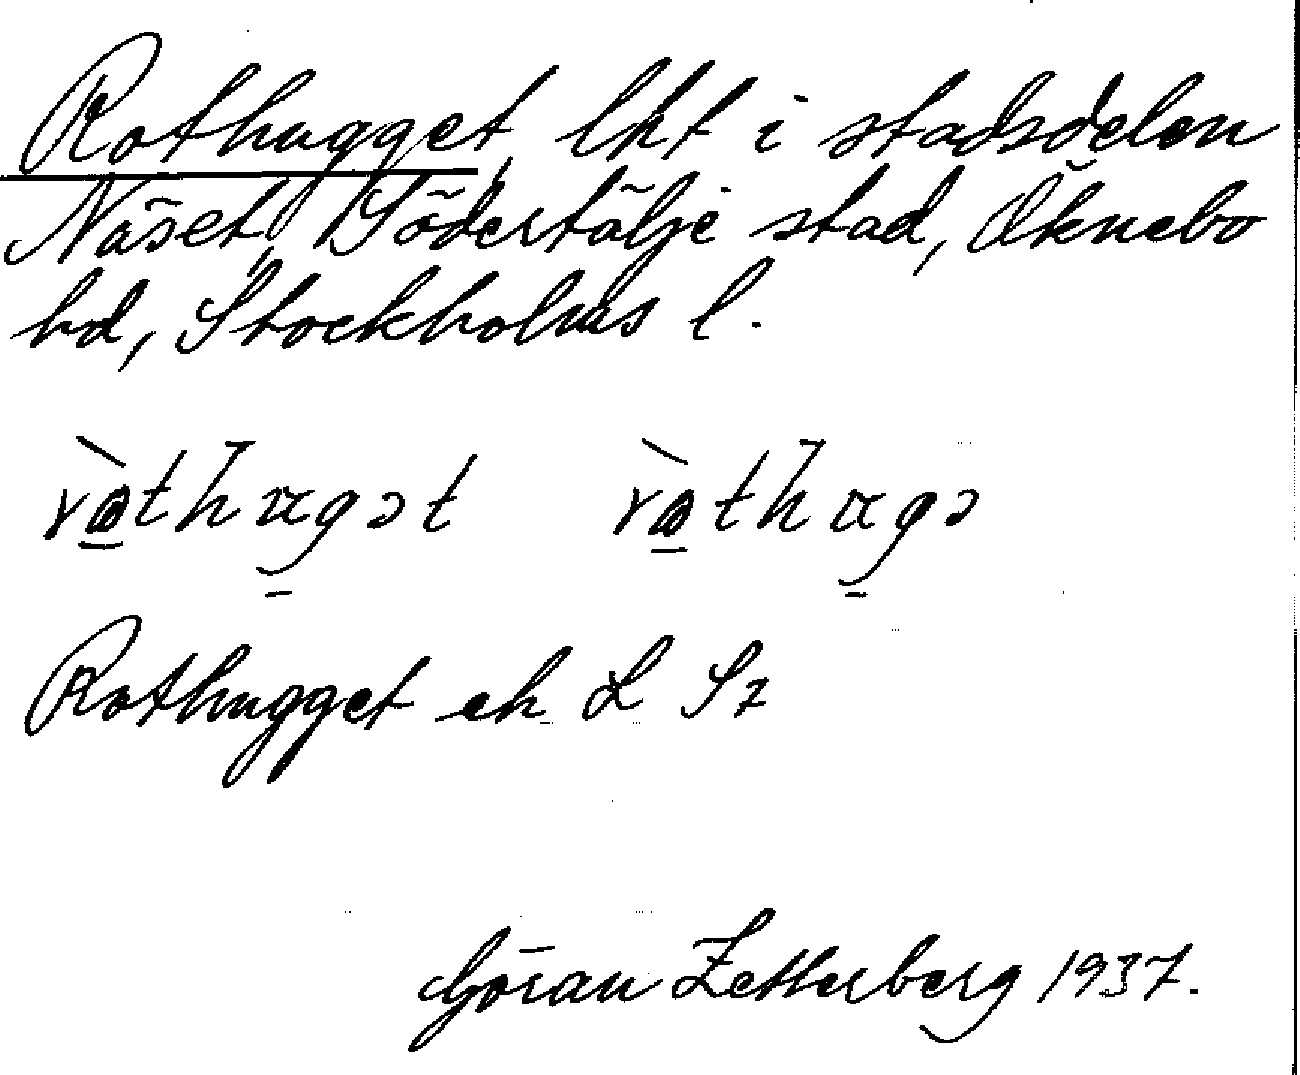 Rothugget, lht i stadsdelen
Näset, Södertälje stad, Öknebo
hd, Stockholms l.
Rothugget ek L Sz
Göran Zetterberg 1937.